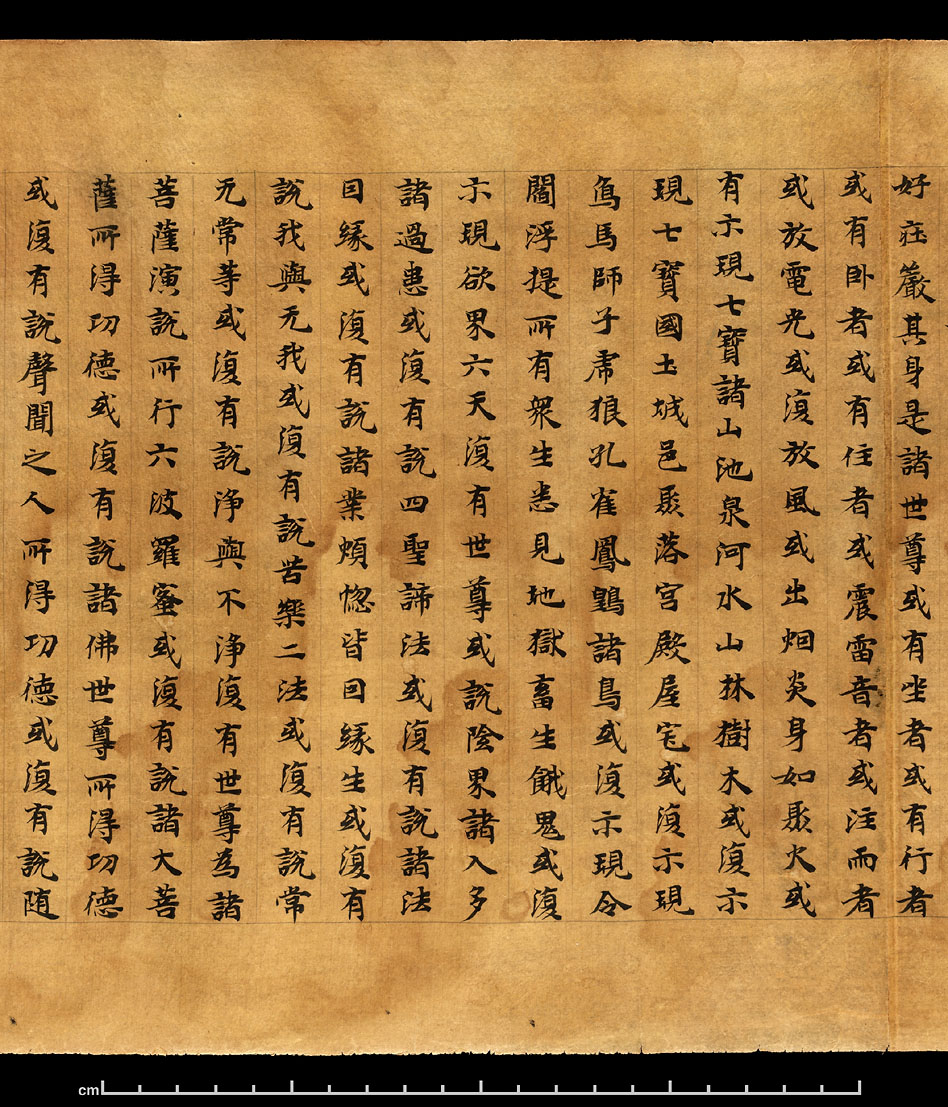 好莊嚴其身是諸世尊或有坐者或有行者
或有卧者或有住者或震雷音者或注雨者
或放電光或復放風或出烟炎身如聚火或
有示現七寶諸山池泉河水山林樹木或復示
現七寶國土城邑聚落宮殿屋宅或復示現
烏馬師子虎狼孔雀鳳鷍諸鳥或復示現令
閻浮提所有衆生悉見地獄畜生餓鬼或復
示現欲界六天復有世尊或說陰界諸入多
諸過患或復有說四聖諦法或復有說諸法
因緣或復有說諸業煩惚皆因緣生或復有
說我與无我或復有說苦樂二法或復有說常
无常等或復有說淨與不淨復有世尊為諸
菩薩演說所行六波羅蜜或復有說諸大菩
薩所得功德或復有說諸佛世尊所得功德
或復有說聲聞之人所得功德或復有說随
cm